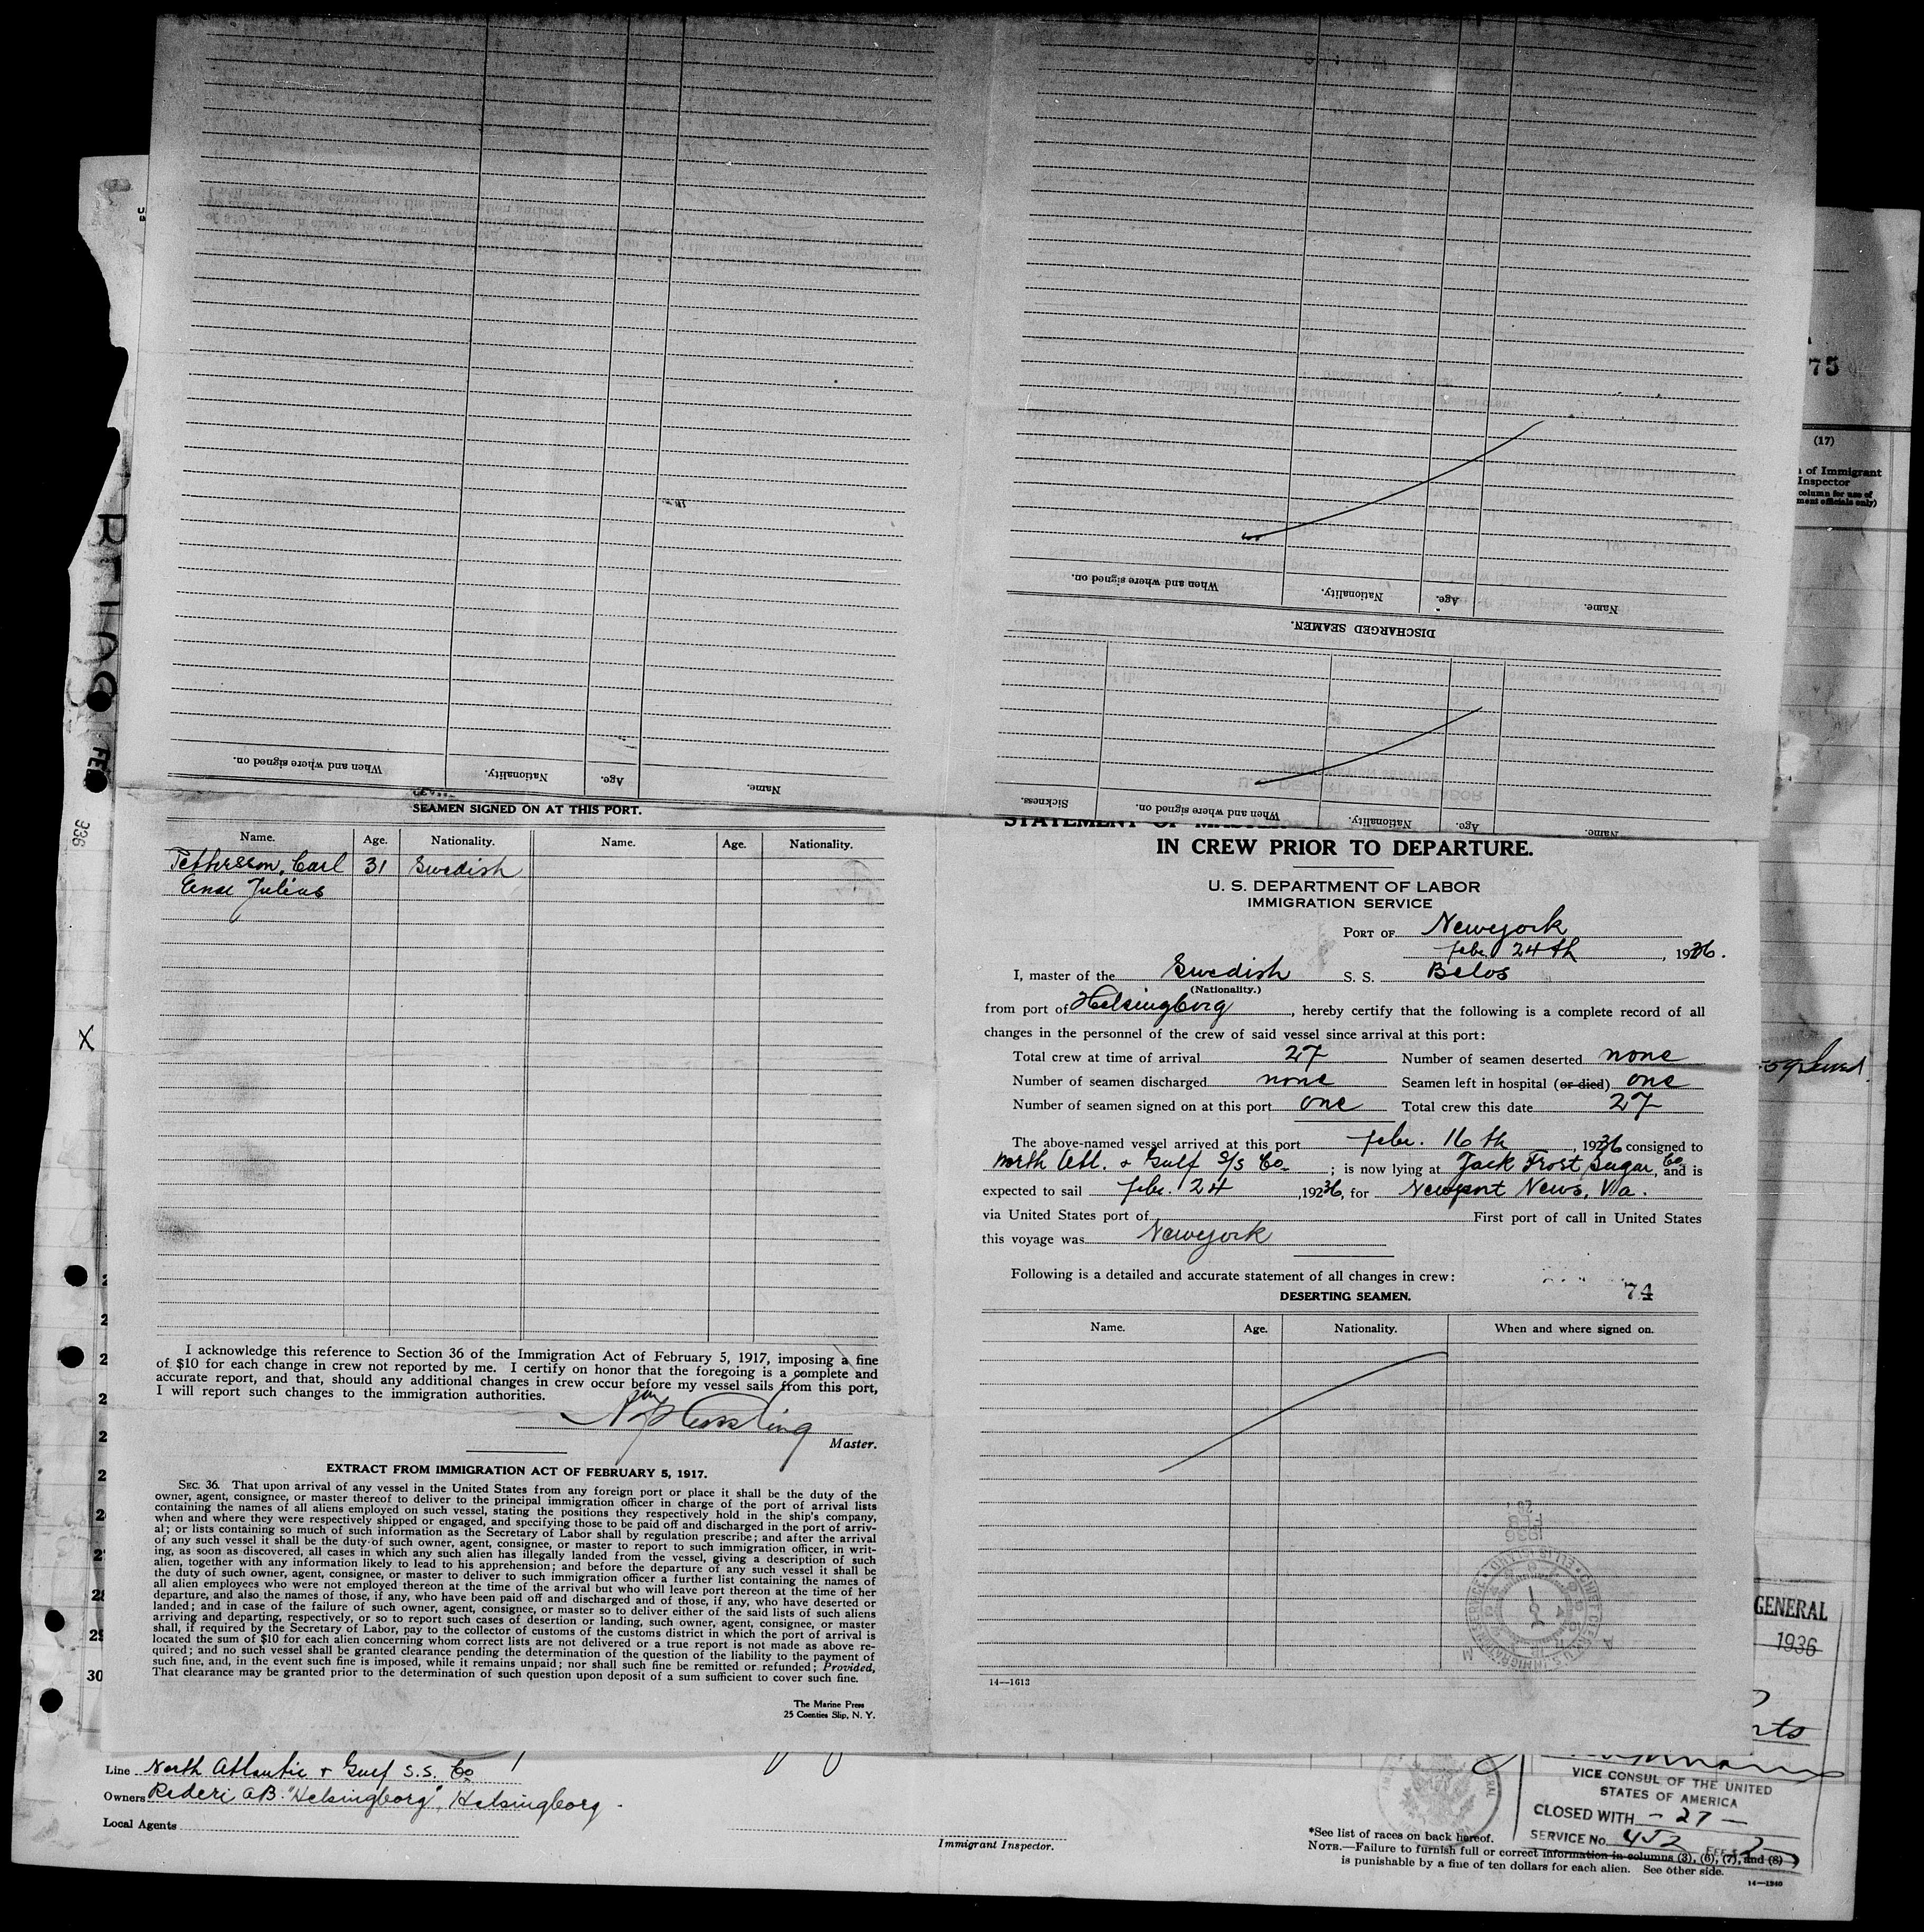 When and where signed on.
Nationality.
Age.
Name.
When and where signed on.
Nationality.
Age.
Name.
DISCHARGED SEAMEN.
Sickness.
When and where signed on.
Nationality.
Age.
Name.
75
(17)
of Immigrant
Inspector
column for use of
ment officials only)
336
X
SEAMEN SIGNED ON AT THIS PORT.
Name. Age. Nationality. Name. Age. Nationality.
Carl 31 Swedish
Julius
I acknowledge this reference to Section 36 of the Immigration Act of February 5, 1917, imposing a fine
of $10 for each change in crew not reported by me. I certify on honor that the foregoing is a complete and
accurate report, and that, should any additional changes in crew occur before my vessel sails from this port,
I will report such changes to the immigration authorities.
Master.
EXTRACT FROM IMMIGRATION ACT OF FEBRUARY 5, 1917.
SEC. 36. That upon arrival of any vessel in the United States from any foreign port or place it shall be the duty of the
owner, agent, consignee, or master thereof to deliver to the principal immigration officer in charge of the port of arrival lists
containing the names of all aliens employed on such vessel, stating the positions they respectively hold in the ship's company,
when and where they were respectively shipped or engaged, and specifying those to be paid off and discharged in the port of arriv-
al; or lists containing so much of such information as the Secretary of Labor shall by regulation prescribe; and after the arrival
of any such vessel it shall be the duty of such owner, agent, consignee, or master to report to such immigration officer, in writ-
ing, as soon as discovered, all cases in which any such alien has illegally landed from the vessel, giving a description of such
alien, together with any information likely to lead to his apprehension; and before the departure of any such vessel it shall be
the duty of such owner, agent, consignee, or master to deliver to such immigration officer a further list containing the names of
all alien employees who were not employed thereon at the time of the arrival but who will leave port thereon at the time of her
departure, and also the names of those, if any, who have been paid off and discharged and of those, if any, who have deserted or
landed; and in case of the failure of such owner, agent, consignee, or master so to deliver either of the said lists of such aliens
arriving and departing, respectively, or so to report such cases of desertion or landing, such owner, agent, consignee, or master
shall, if required by the Secretary of Labor, pay to the collector of customs of the customs district in which the port of arrival is
located the sum of $10 for each alien concerning whom correct lists are not delivered or a true report is not made as above re-
quired; and no such vessel shall be granted clearance pending the determination of the question of the liability to the payment of
such fine, and, in the event such fine is imposed, while it remains unpaid; nor shall such fine be remitted or refunded; Provided,
That clearance may be granted prior to the determination of such question upon deposit of a sum sufficient to cover such fine.
The Marine Press
25 Coenties Slip, N. Y.
STATEMENT OF MASTER
IN CREW PRIOR TO DEPARTURE.
U. S. DEPARTMENT OF LABOR
IMMIGRATION SERVICE
PORT OF Newyork
febr 24th, 1936.
I, master of the Swedish S. S. Belos
(Nationality.)
from port of Helsingborg, hereby certify that the following is a complete record of all
changes in the personnel of the crew of said vessel since arrival at this port:
Total crew at time of arrival 27 Number of seamen deserted none
Number of seamen discharged none Seamen left in hospital (or died) one
Number of seamen signed on at this port one Total crew this date 27
The above-named vessel arrived at this port febr. 16th, 1936 consigned to
North Atl. & Gulf S/S Co.; is now lying at Jack Frost Sugar Co, and is
expected to sail febr. 24, 1936, for Newport News, Va.
via United States port of First port of call in United States
this voyage was Newyork
Following is a detailed and accurate statement of all changes in crew:
74
DESERTING SEAMEN.
Name. Age. Nationality. When and where signed on.
14—1613
28
29
30
GENERAL
1936
Line North Atlantic & Gulf S.S. Co
Owners Rederi AB. "Helsingborg", Helsingborg.
Local Agents
Immigrant Inspector.
VICE CONSUL OF THE UNITED
STATES OF AMERICA
CLOSED WITH — 27 —
SERVICE No. 452
*See list of races on back hereof.
NOTE.—Failure to furnish full or correct information in columns (3), (6), (7), and (8)
is punishable by a fine of ten dollars for each alien. See other side.
14—1240